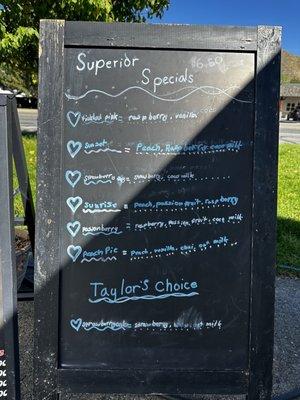 Superior $6.50
Specials
tickled pink = raspberry, vanilla, coco
Sunset = Peach, Raspberry coco milk
= strawberry, coco milk
Sunrise = Peach, passion fruit, raspberry
= raspberry, passion fruit, coco milk
Peach Pie = Peach, vanilla, chai, oat milk
Taylor's Choice
= strawberry, milk